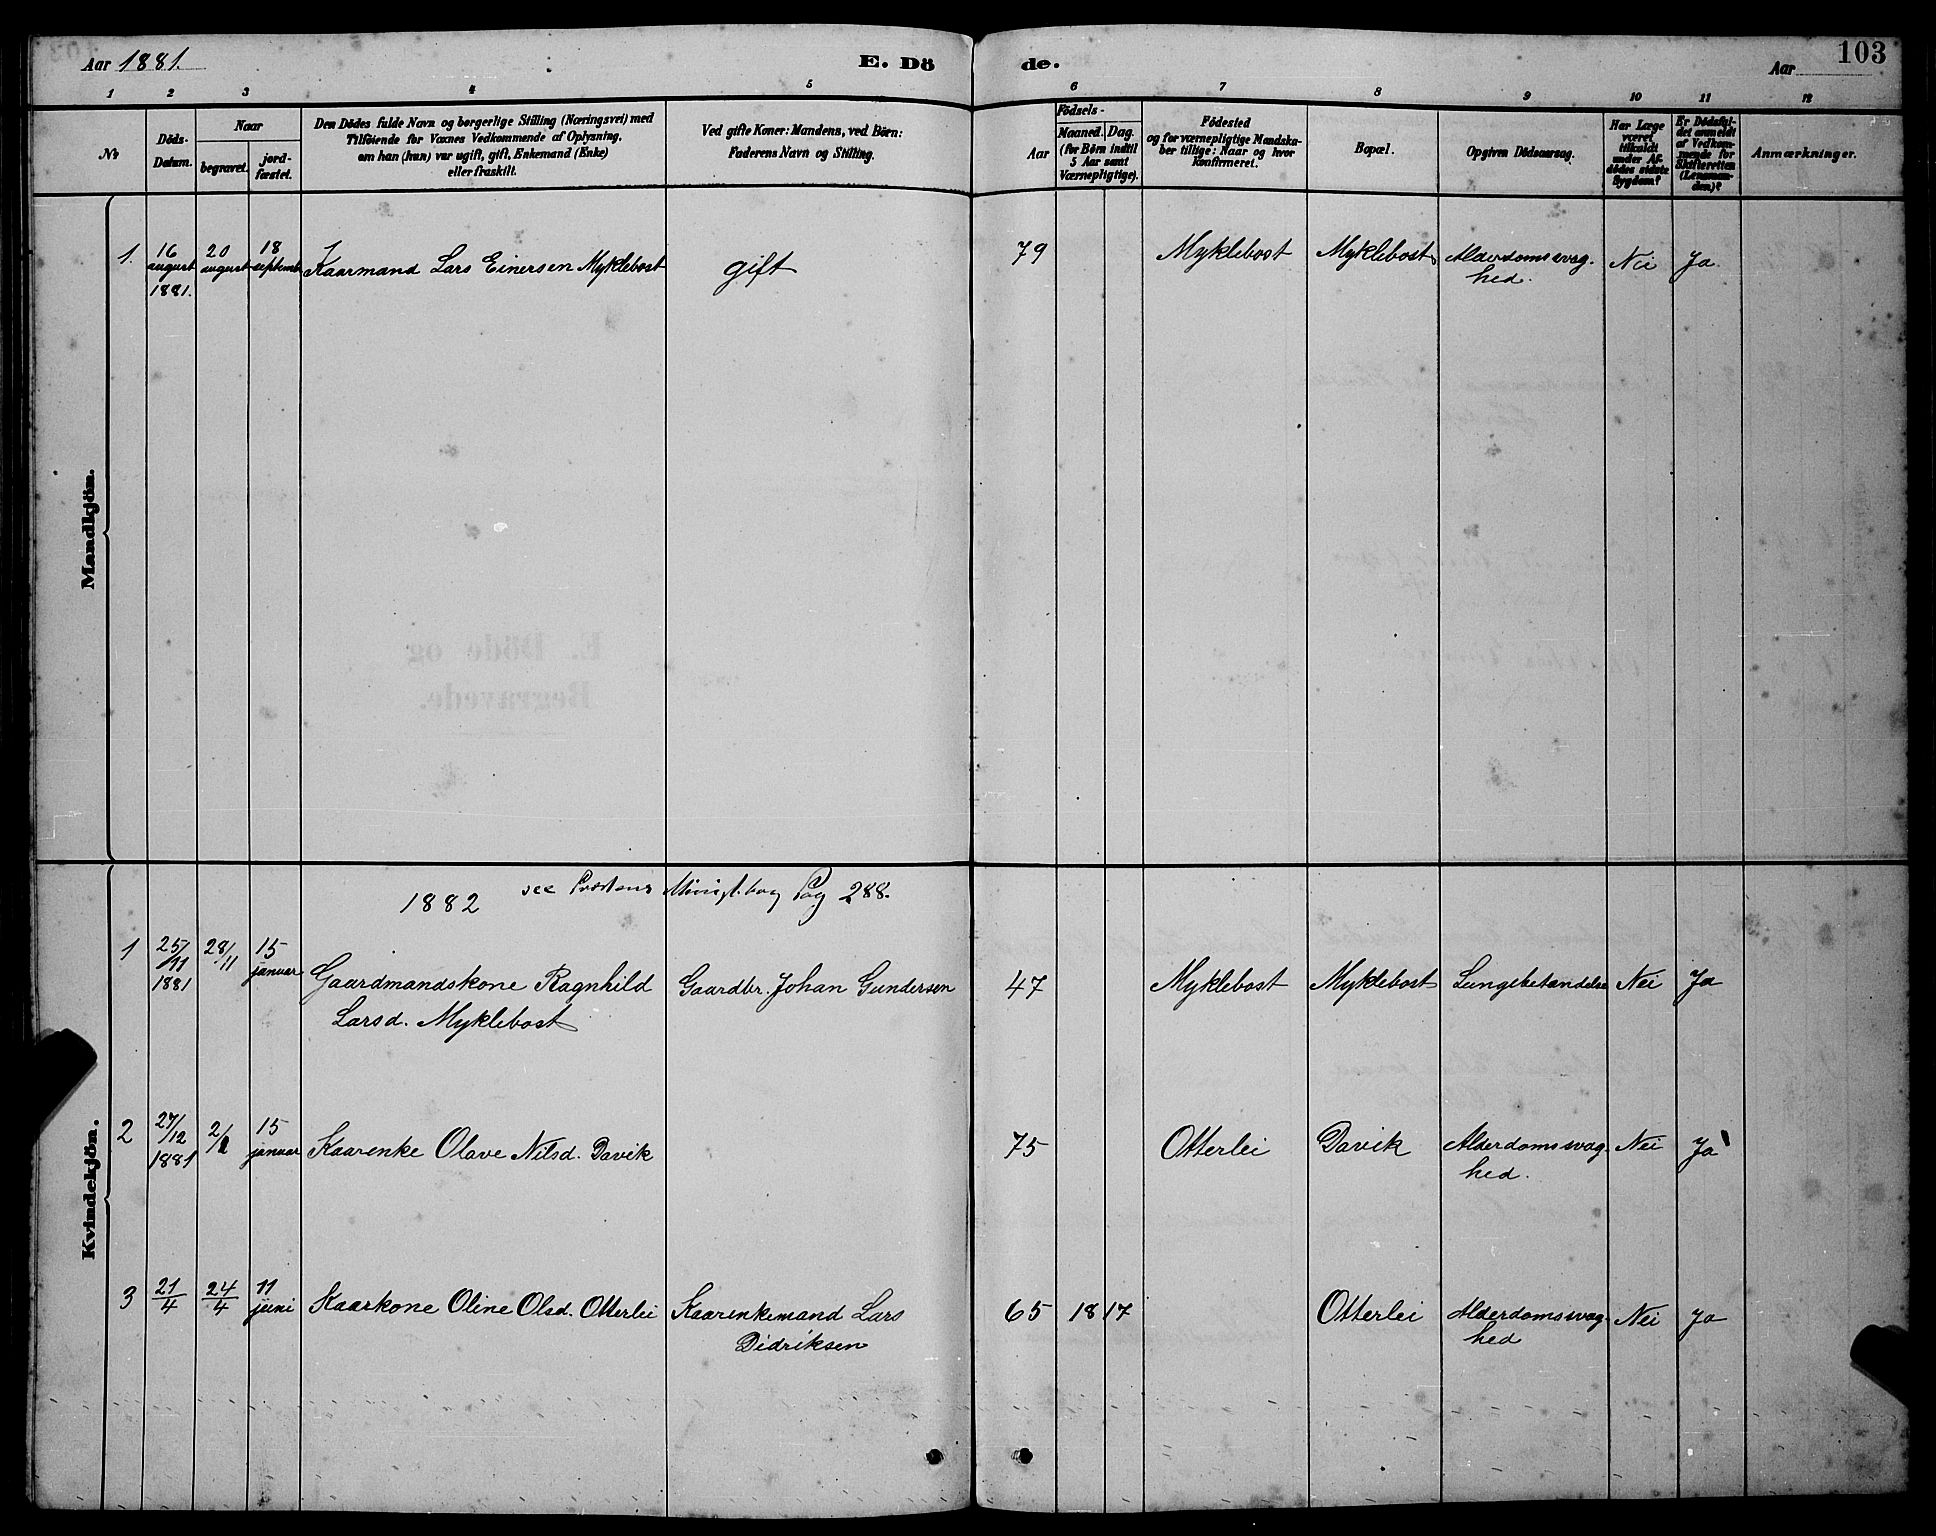 Aar 1881.
E. Dö
de.
103
Aar
1 2 3 4 5 6 7 8 9 10 11 12
No
Döds-
Datum.
Naar
begravet.
jord-
fæstet.
Den Dödes fulde Navn og borgerlige Stilling (Næringsvei) med
Tilföiende for Voxnes Vedkommende af Oplysning,
om han (hun) var ugift, gift, Enkemand (Enke)
eller fraskilt.
Ved gifte Koner: Mandens, ved Börn:
Faderens Navn og Stilling.
Aar
Födsels-
Maaned. Dag.
(for Börn indtil
5 Aar samt
Værnepligtige).
Födested
og for værnepligtige Mandska-
ber tillige: Naar og hvor
konfirmeret.
Bopæl.
Opgiven Dödsaarsag.
Har Læge
været
tilkaldt
under Af-
dödes sidste
Sygdom?
Er Dödsfal-
det anmeldt
af Vedkom-
mende for
Skifteretten
(Lensman-
den)?
Anmærkninger.
Mandkjön.
1. 16 august 1881. 20 august 18 septemb Kaarmand Lars Einersen Myklebost gift 79 Myklebost Myklebost Alderdomssvag-
hed. Nei Ja.
Kvindekjön.
1882 see Præstens Minist.bog Pag 288.
1 25/11 1881 28/11 15 januar Gaardmandskone Ragnhild Gaardbr. Johan Gundersen 47 Myklebost Myklebost Lungebetændelse Nei Ja
Larsd. Myklebost
2 27/12 1881 2/1 15 januar Kaarenke Olave Nilsd. Davik 75 Otterlei Davik Alderdomssvag-
hed. Nei Ja
3 21/4 24/4 11 juni Kaarkone Oline Olsd. Otterlei Kaarenkemand Lars 65 1817 Otterlei Alderdomssvag-
Didriksen hed Nei Ja